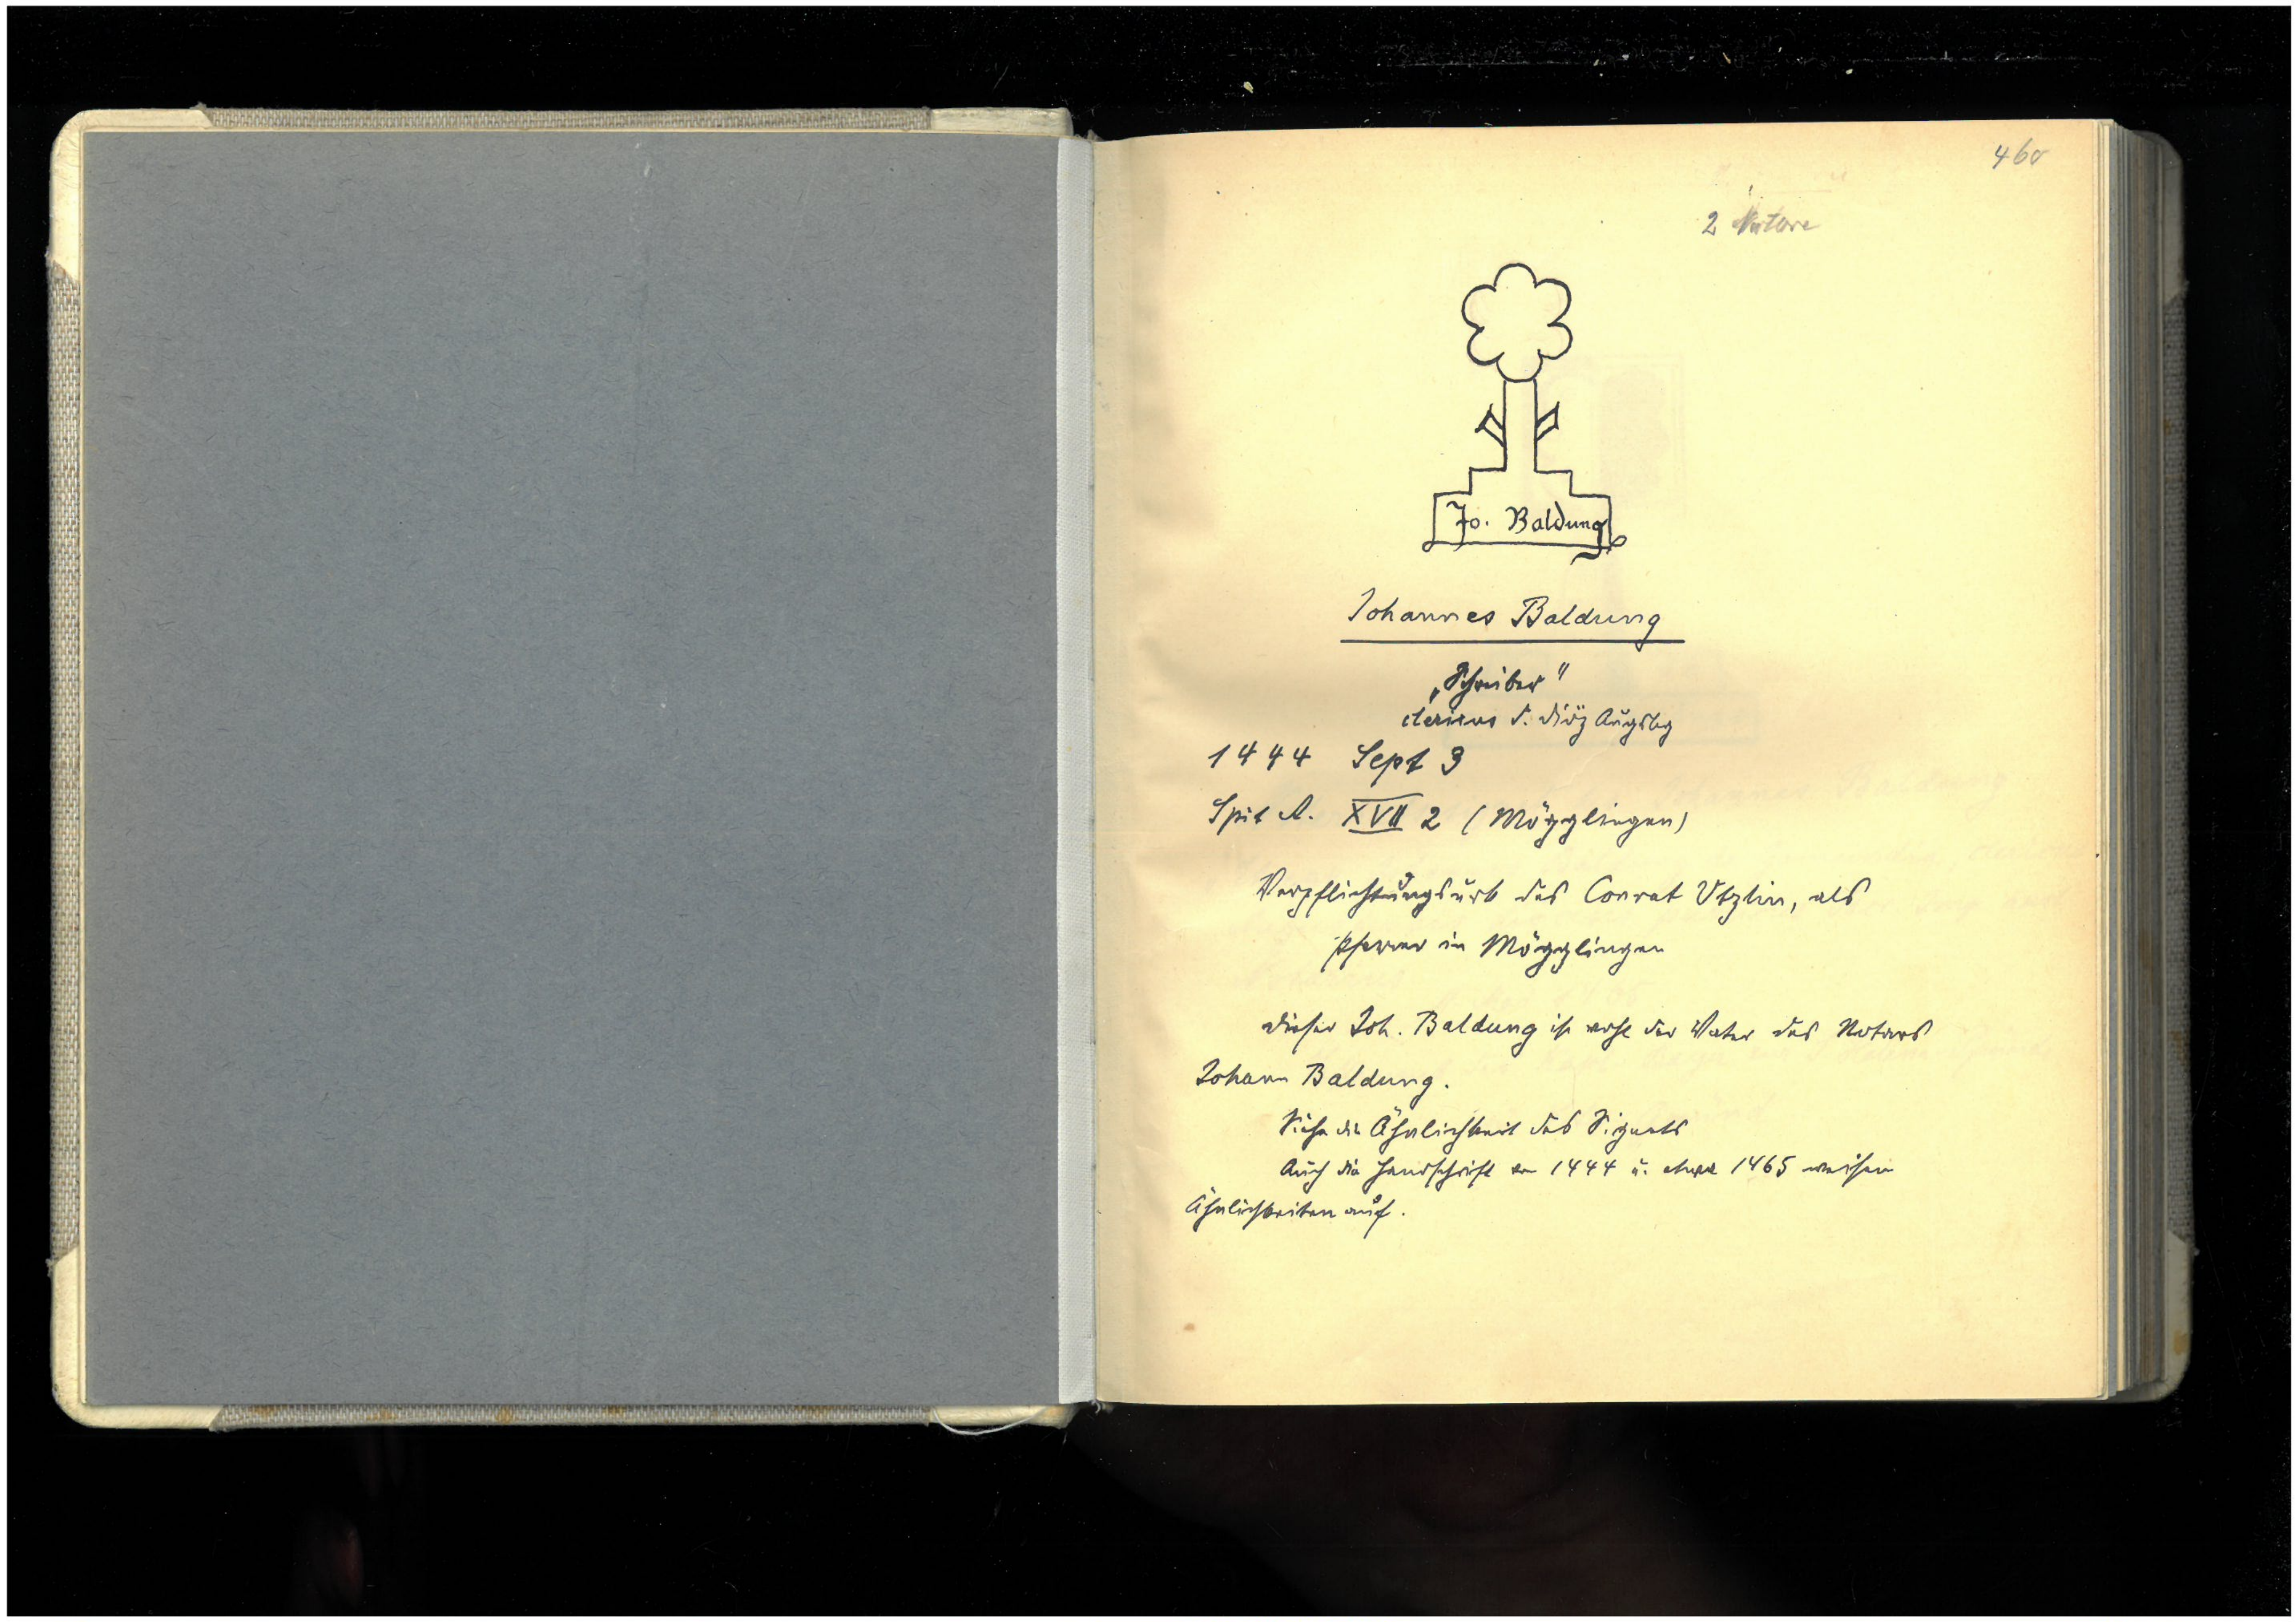 460
2 Notare
Jo. Baldung
Johannes Baldung
„Schreiber"
clericus d. Diöz Augsbg
1444 Sept 3
Spit A. XVII 2 (Mögglingen)
Verpflichtungsurk des Conrat Utzlin, als
Pfarrer in Mögglingen
Dieser Joh. Baldung ist wohl der Vater des Notars
Johann Baldung.
Siehe die Ähnlichkeit des Signets
Auch die Handschrift von 1444 u. etwa 1465 weisen
Ähnlichkeiten auf.